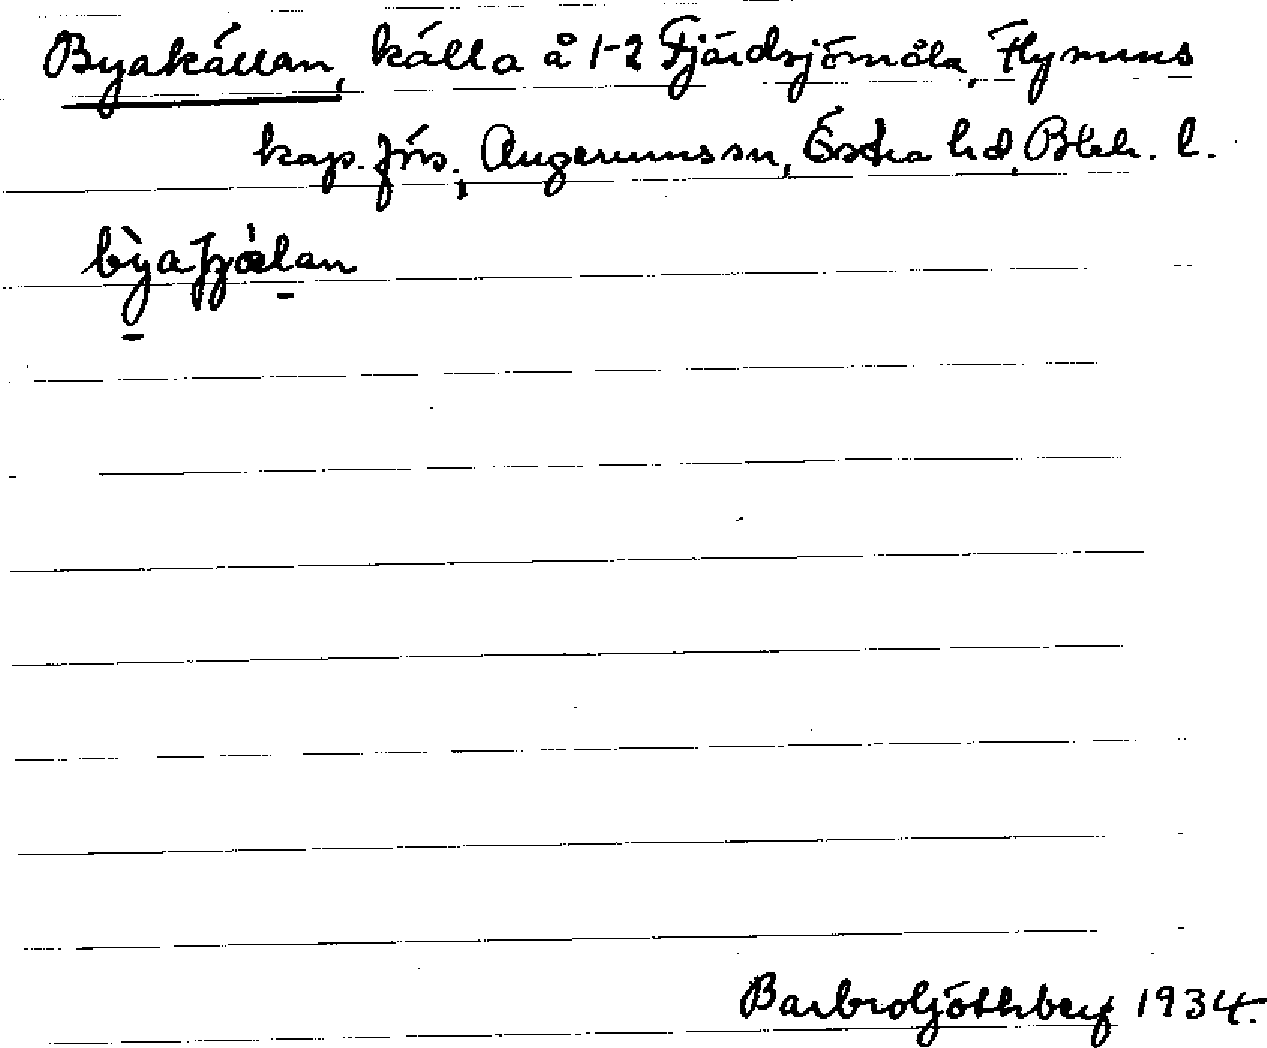 Byakällan, källa å 1-2 Fjärdsjömåla, Flymens
kap. förs., Augerums sn, Östra hd, Blek. l.
bỳaʃjälan
Barbro Ljöthberg 1934.